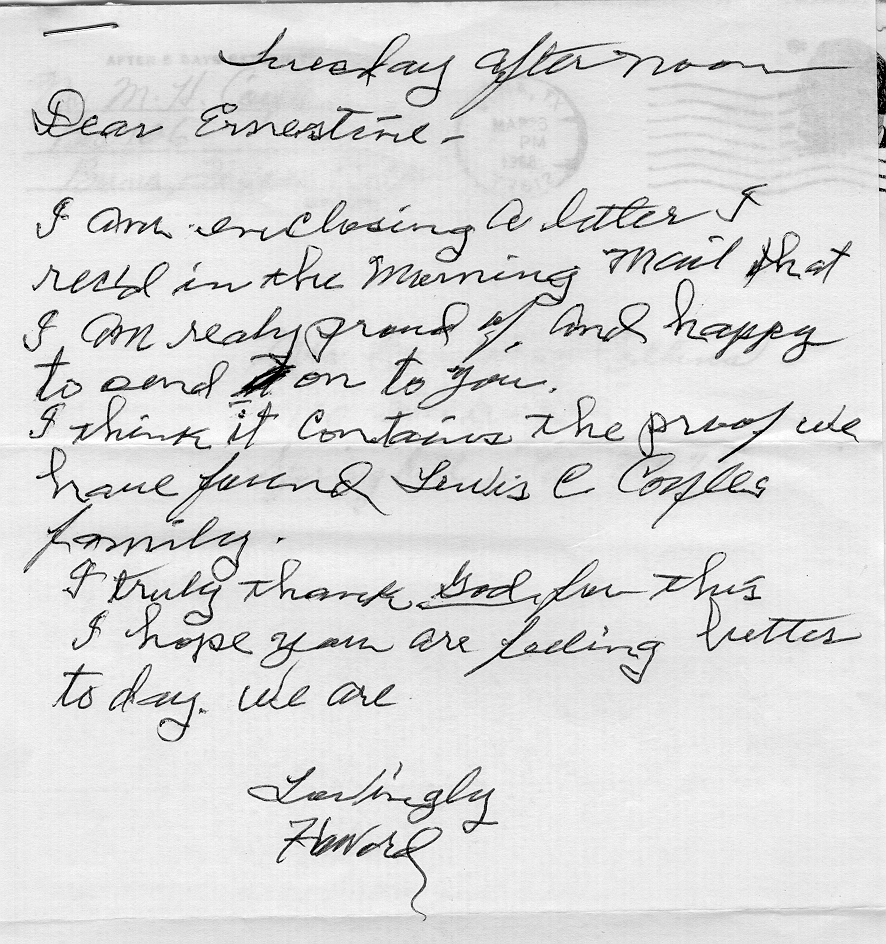 Tuesday afternoon
Dear Ernestine -
I am enclosing a letter I
rec'd in the Morning Mail that
I am realy proud of, and happy
to send on to you.
I think it contains the proof we
have found Lewis C
family.
I truly thank God for this
I hope you are feeling better
to day. we are
Lovingly
Howard
AFTER 5 DAYS
M. H.
MAR
PM
1968